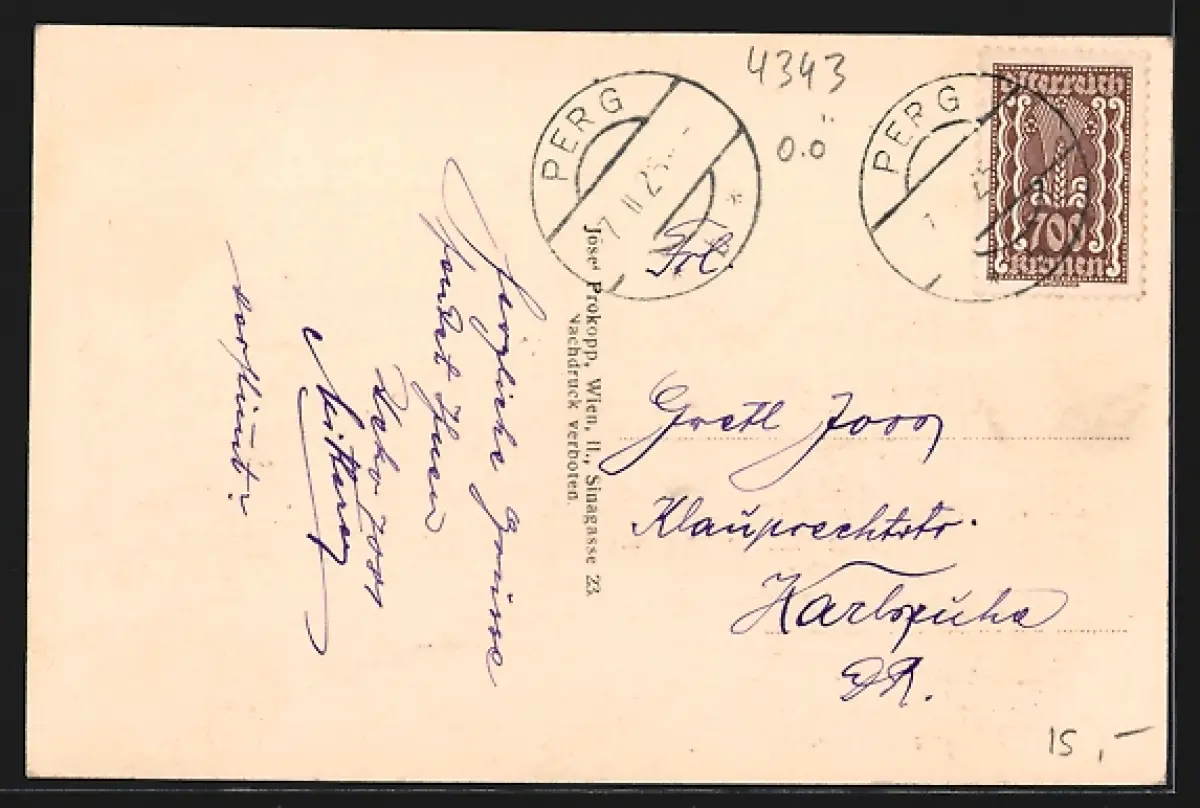 4343
O.Ö
PERG
7 II 25
PERG
Österreich
700
Kronen
Frl.
Gretl
Klauprechtstr.
Karlsruhe
DR.
Josef Prokopp, Wien, II., Sinagasse 23
Nachdruck verboten.
Herzliche Grüsse
sendet Ihnen
15,-